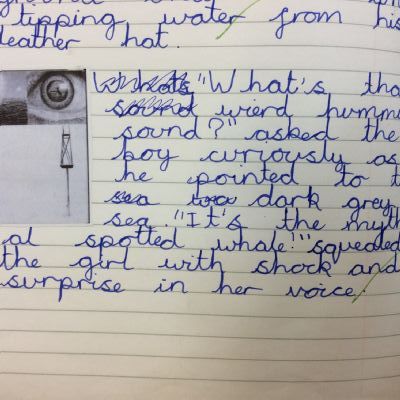 tipping water from his
leather hat.
"What's tha
sound wierd hummi
sound?" asked the
boy curiously as
he pointed to t
sea too dark grey
sea. "It's the myth
al spotted whale!" squealed
the girl with shock and
surprise in her voice.